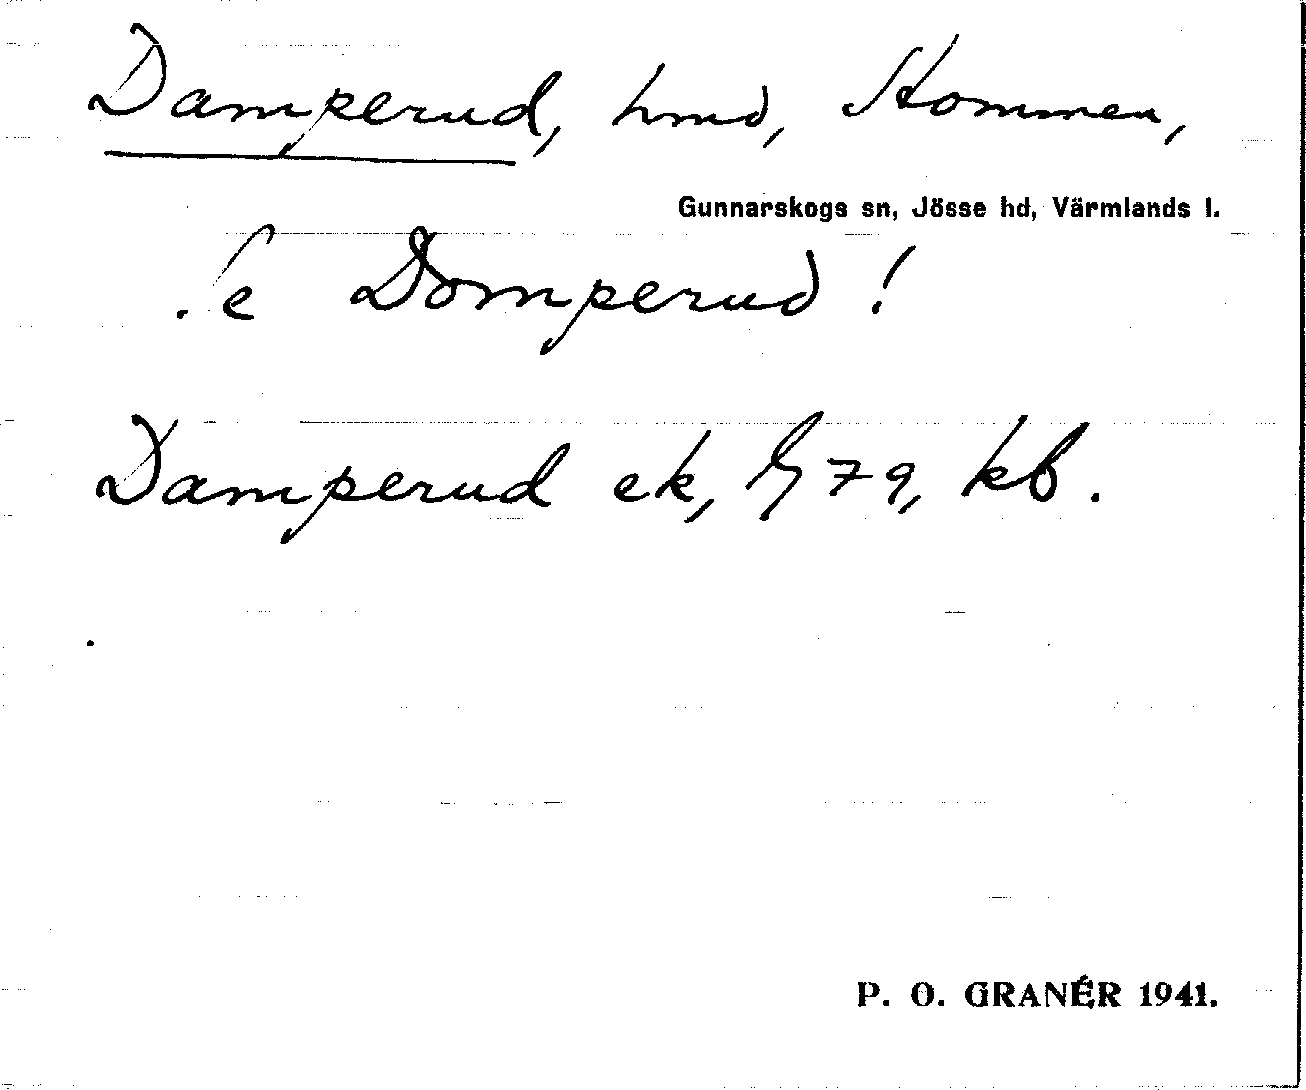 Damperud, hmd, Stommen,
Gunnarskogs sn, Jösse hd, Värmlands l.
Se Domperud!
Damperud ek, G 79, kb.
P. O. GRANÉR 1941.